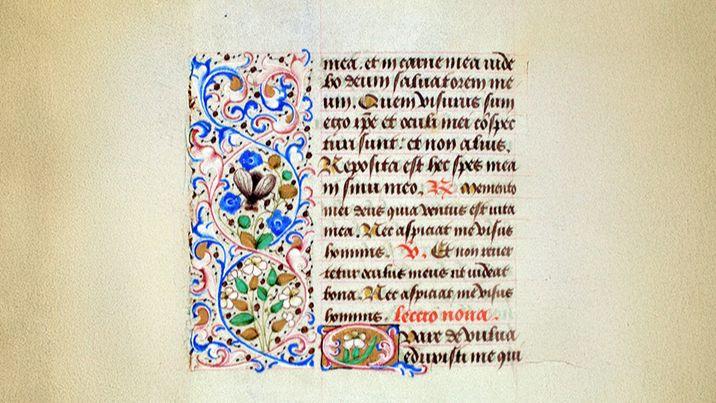 mea. et in carne mea uide
bo deum saluatorem me
um. Quem visurus sum
ego ip̄e et oculi mei cōspec
turi sunt: et non alius.
Reposita est hec spes mea
in sinu meo. R̷ Memento
mei deus quia ventus est uita
mea. Nec aspiciat me visus
hominis. V. Et non rever
tetur oculus meus ut videat
bona. Nec aspiciat me visus
hominis. Lectio nona.
Quare de vulua
eduxisti me qui